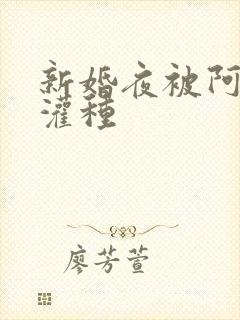 新婚夜被阿
灌種
廖芳萱